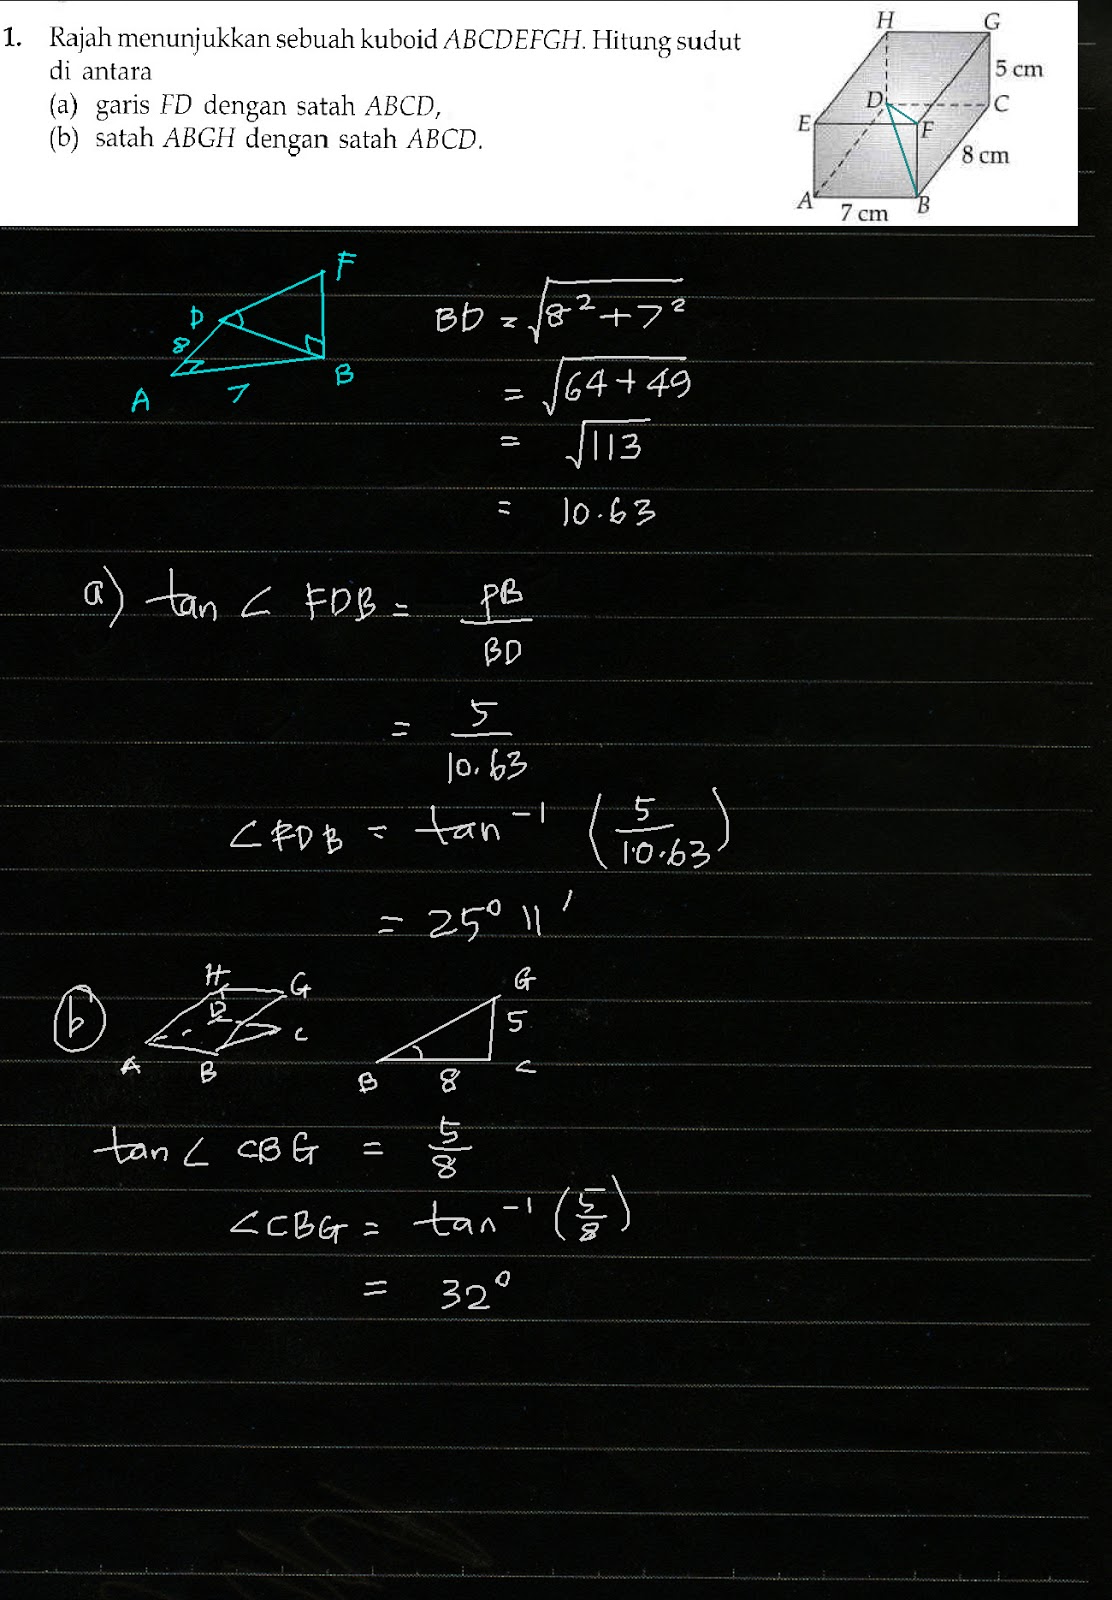 1. Rajah menunjukkan sebuah kuboid ABCDEFGH. Hitung sudut
di antara
(a) garis FD dengan satah ABCD,
(b) satah ABGH dengan satah ABCD.
H G
5 cm
D C
E F
8 cm
A B
7 cm
F
D
8
A 7 B
BD = √8² + 7²
= √64 + 49
= √113
= 10.63
a) tan ∠ FDB = FB
BD
= 5
10.63
∠FDB = tan⁻¹ (5/10.63)
= 25° 11'
b
H G
D C
A B
G
5
B 8 C
tan ∠ CBG = 5/8
∠CBG = tan⁻¹ (5/8)
= 32°